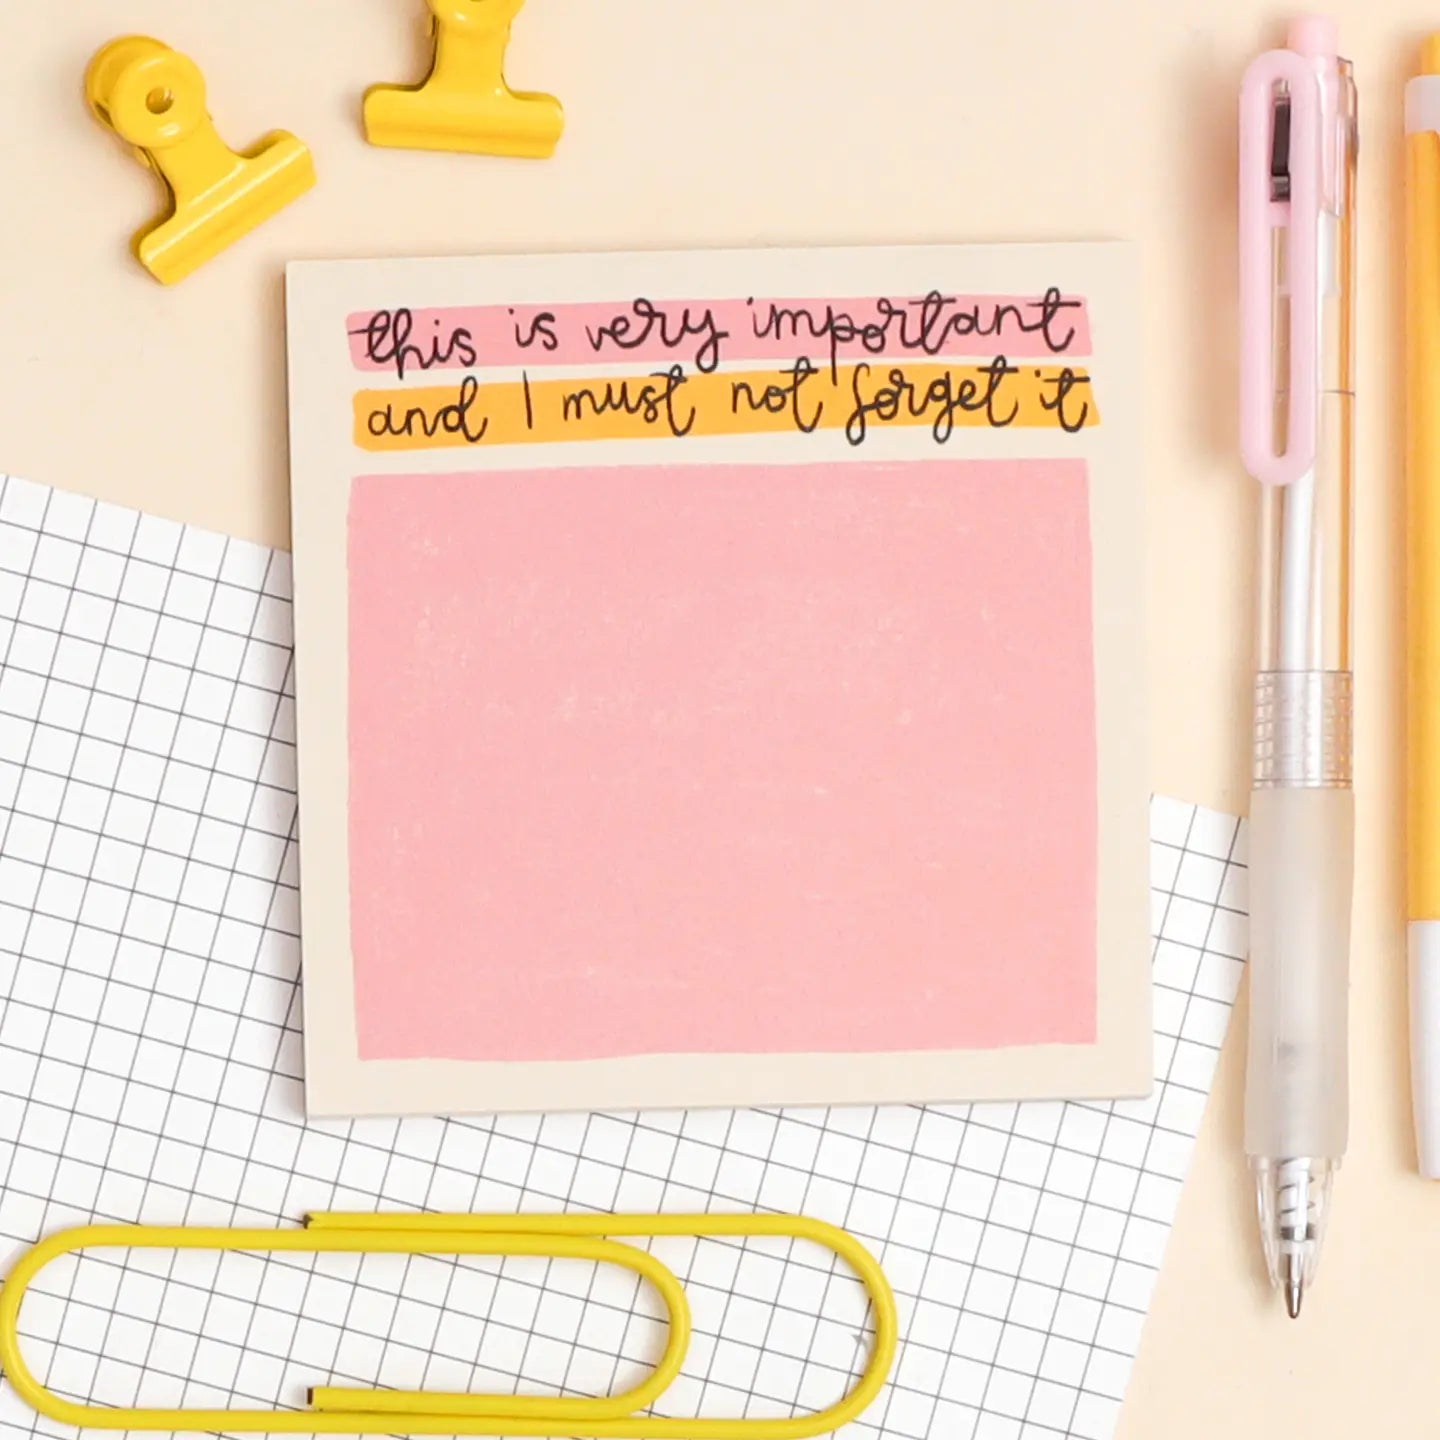 this is very important
and I must not forget it